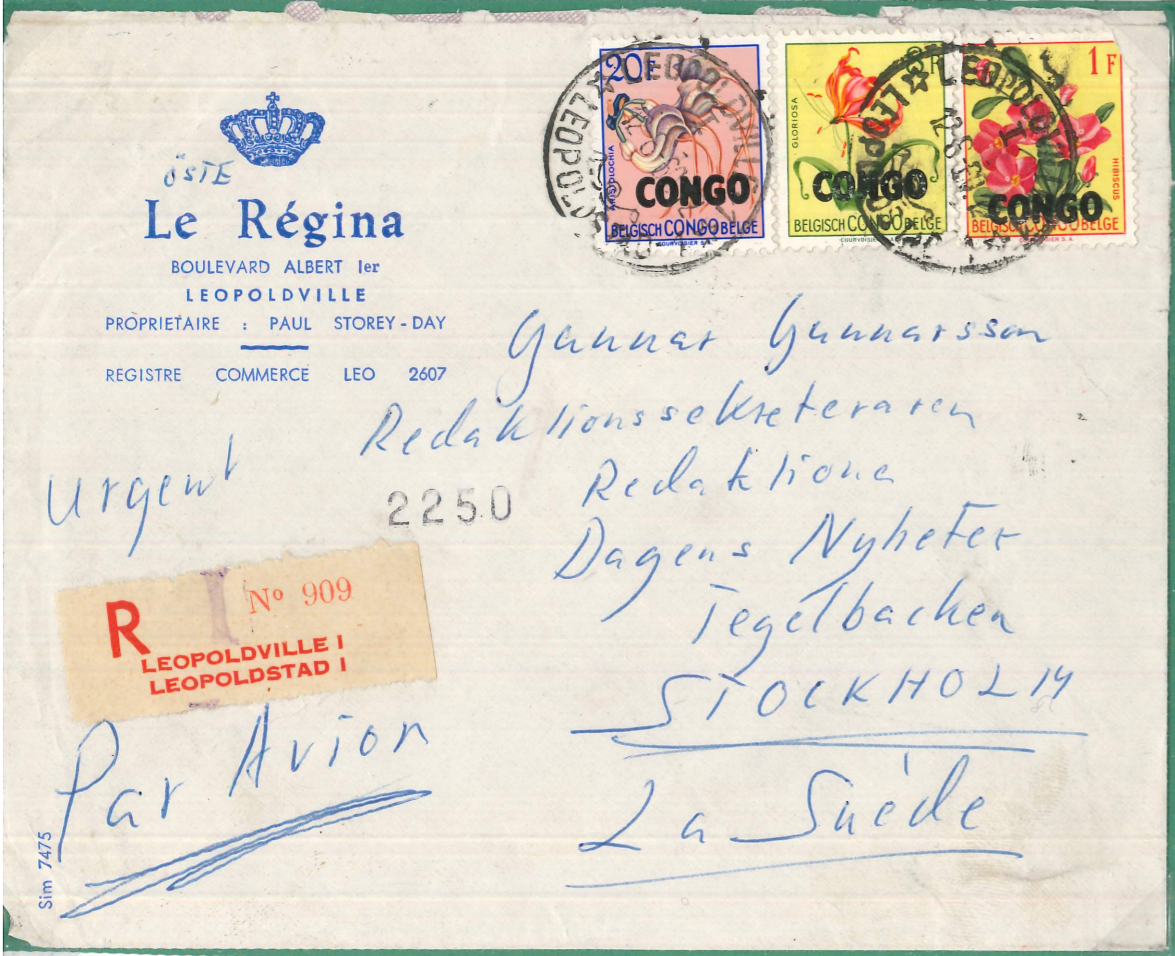 ÖSTE
Le Régina
BOULEVARD ALBERT Ier
LEOPOLDVILLE
PROPRIETAIRE : PAUL STOREY-DAY
REGISTRE COMMERCE LEO 2607
20F
ARISTOLOCHIA
CONGO
BELGISCH CONGO BELGE
COURVOISIER S.A.
GLORIOSA
CONGO
BELGISCH CONGO BELGE
COURVOISIER S.A.
1F
HIBISCUS
CONGO
BELGISCH CONGO BELGE
COURVOISIER S.A.
LEOPOLDVILLE
LEOPOLDVILLE
Gunnar Gunnarsson
Redaktionssekreteraren
Redaktionen
Dagens Nyheter
Tegelbacken
STOCKHOLM
La Suède
Urgent
2250
R
I
Nº 909
LEOPOLDVILLE I
LEOPOLDSTAD I
Par Avion
Sim 7475